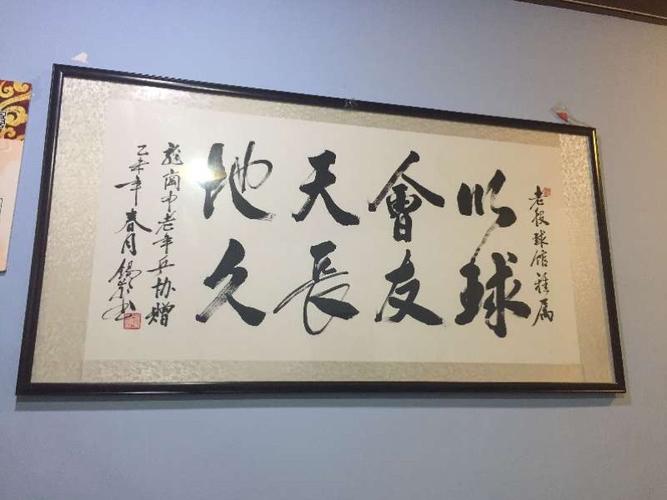 老段球馆雅属
以球
會友
天長
地久
龙岗中老年乒协赠
乙未年春月